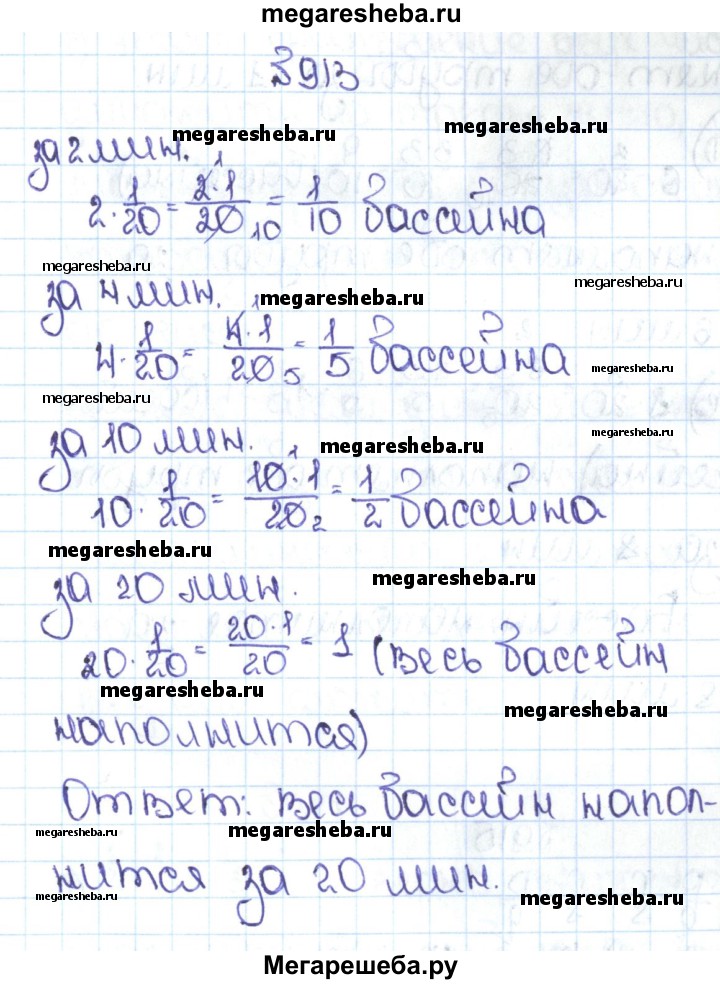 megaresheba.ru
3913
megaresheba.ru
megaresheba.ru
за 2 мин.
2 · 1/20 = 2·1/20 = 1/10 бассейна
1
10
megaresheba.ru
megaresheba.ru
за 4 мин.
megaresheba.ru
4 · 1/20 = 4·1/20 = 1/5 бассейна
1
5
megaresheba.ru
megaresheba.ru
за 10 мин.
megaresheba.ru
megaresheba.ru
10 · 1/20 = 10·1/20 = 1/2 бассейна
1
2
megaresheba.ru
за 20 мин.
megaresheba.ru
20 · 1/20 = 20·1/20 = 1 (весь бассейн
megaresheba.ru
megaresheba.ru
наполнится)
Ответ: весь бассейн напол-
megaresheba.ru
megaresheba.ru
нится за 20 мин.
megaresheba.ru
megaresheba.ru
Мегарешеба.ру